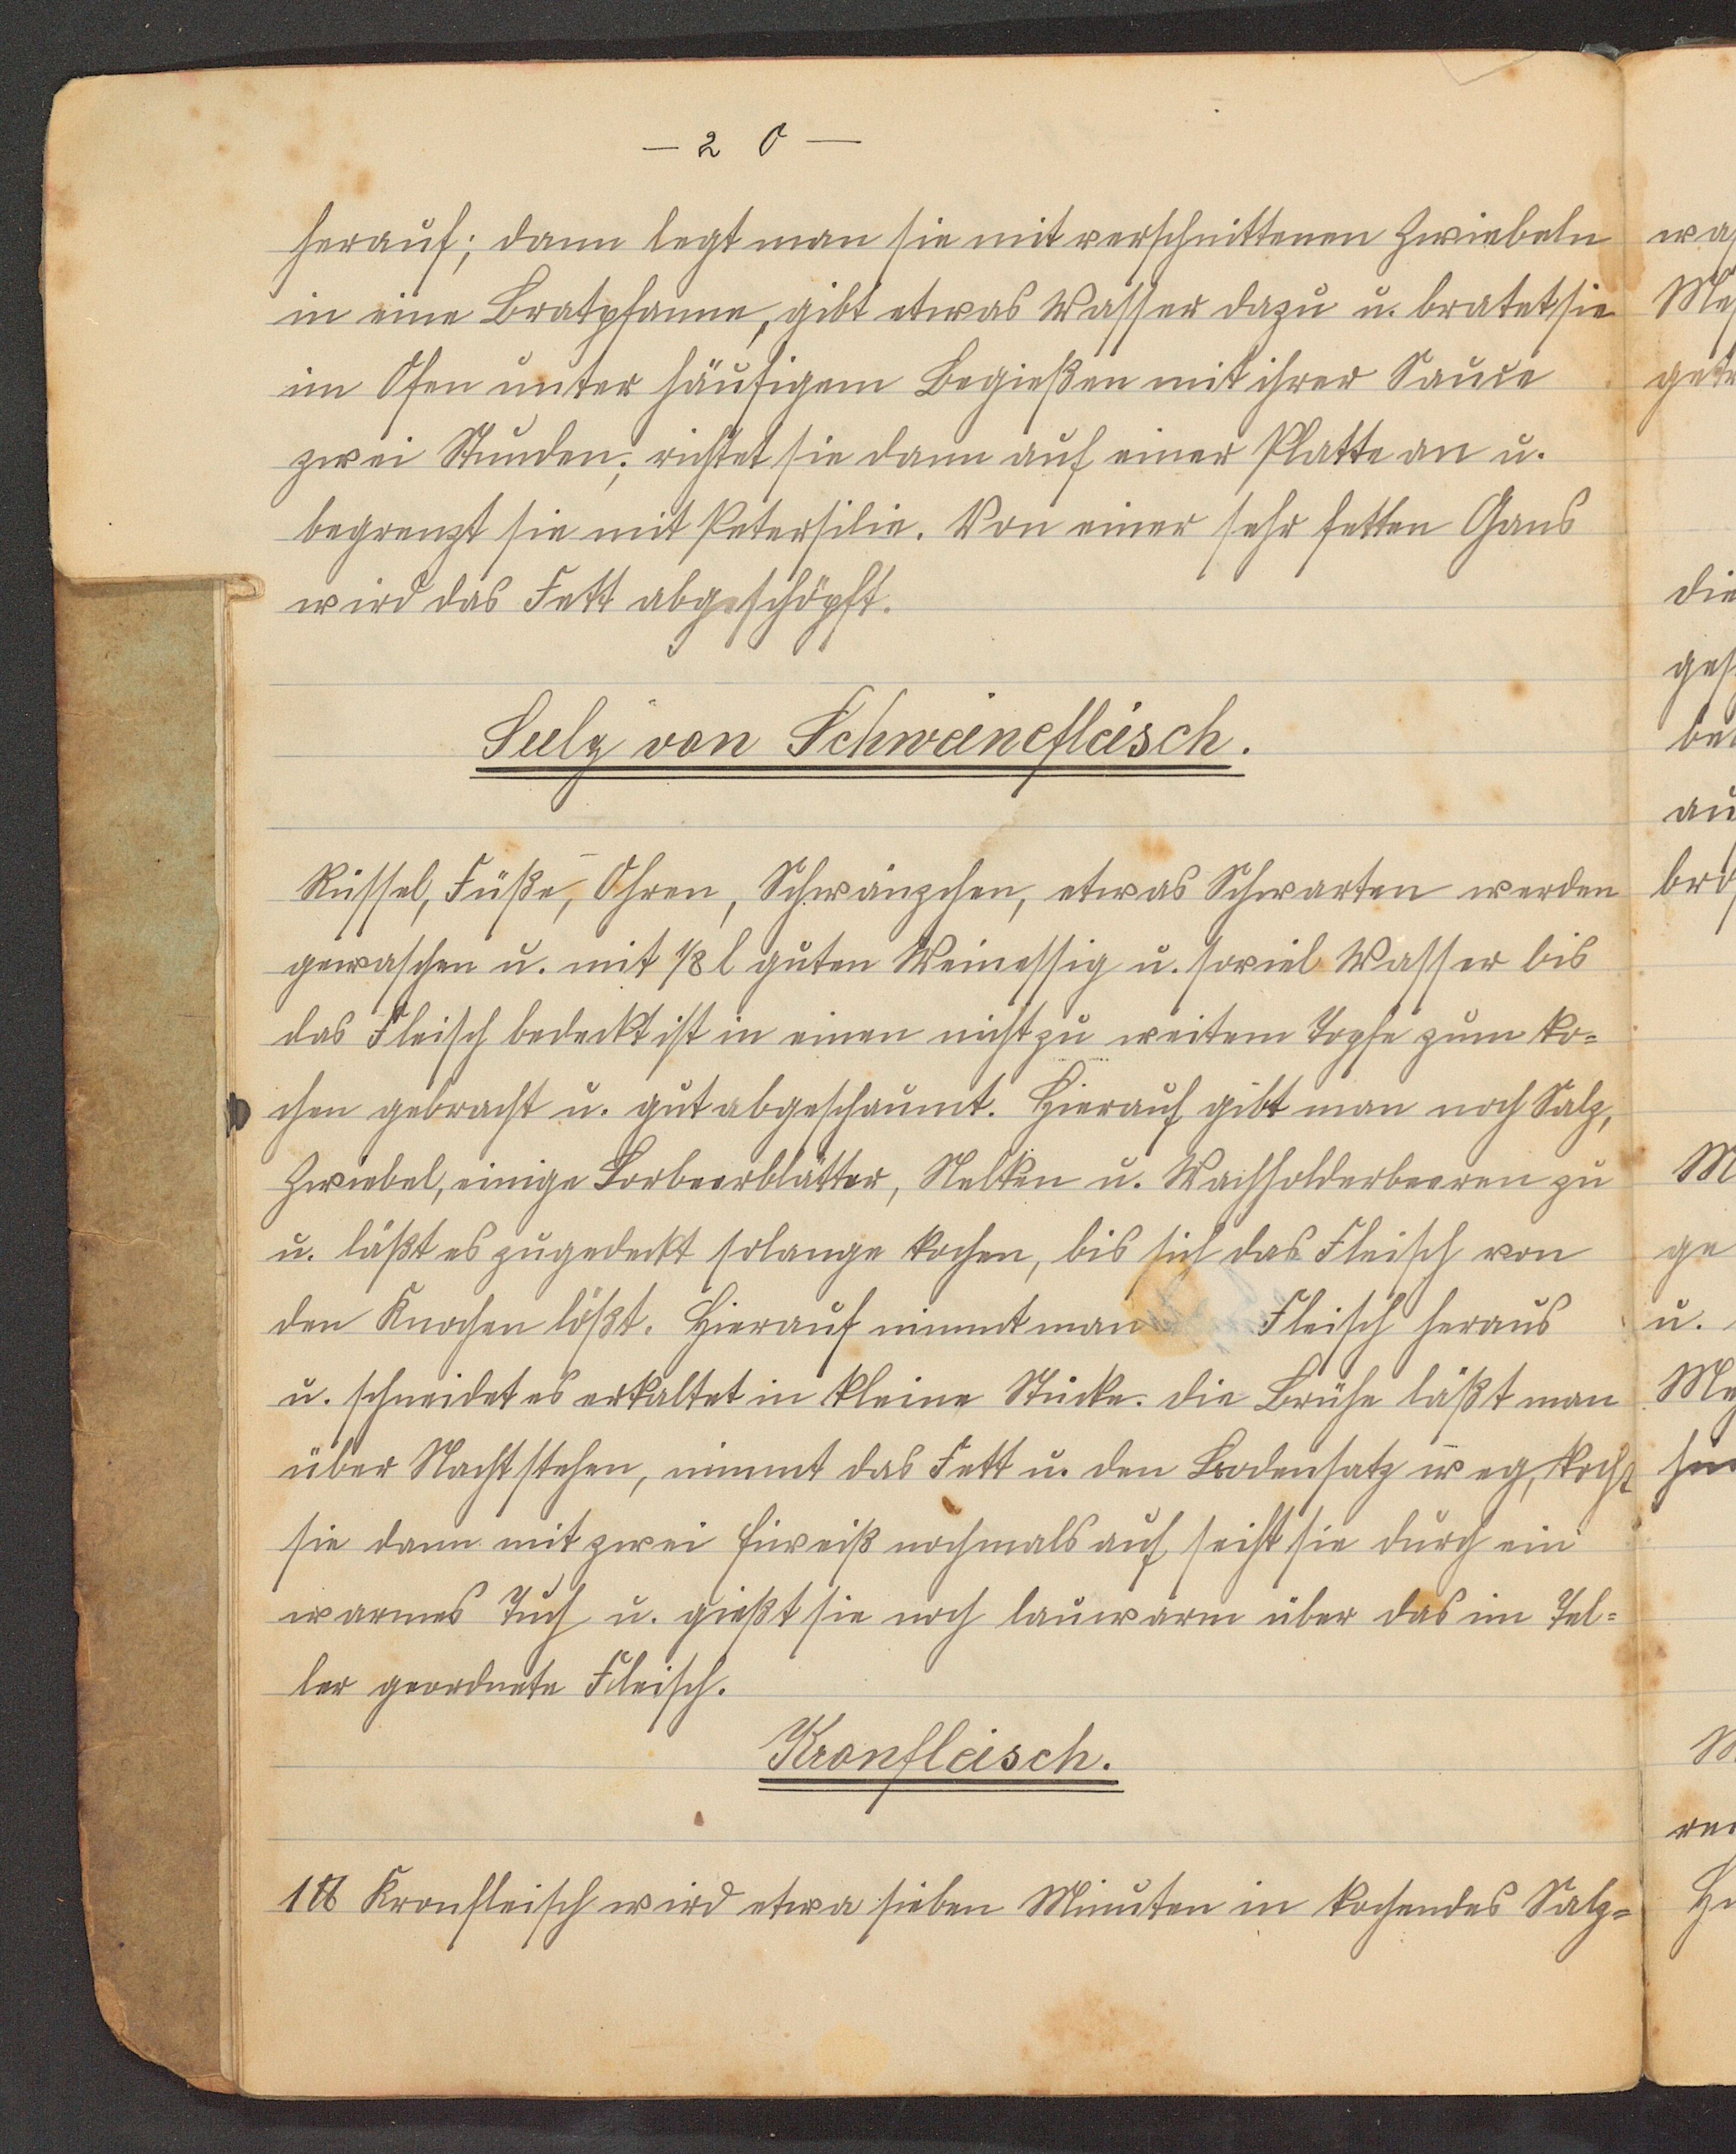 - 20 -
herauf; dann legt man sie mit verschnittenen Zwiebeln
in eine Bratpfanne, gibt etwas Wasser dazu u. bratet sie
im Ofen unter häufigem Begießen mit ihrer Sauce
zwei Stunden; richtet sie dann auf einer Platte an u.
begrenzt sie mit Petersilie. Von einer sehr fetten Gans
wird das Fett abgeschöpft.
Sulz von Schweinefleisch.
Rüssel, Füße, Ohren, Schwänzchen, etwas Schwarten werden
gewaschen u. mit 1/8 l guten Weinessig u. soviel Wasser bis
das Fleisch bedeckt ist in einen nicht zu weitem Topfe zum ko=
chen gebracht u. gut abgeschaumt. Hierauf gibt man noch Salz,
Zwiebel, einige Lorbeerblätter, Nelken u. Wachholderbeeren zu
u. läßt es zugedeckt solange kochen, bis sich das Fleisch von
den Knochen lößt. Hierauf nimmt man Fleisch heraus
u. schneidet es erkaltet in kleine Stücke. die Brühe läßt man
über Nacht stehen, nimmt das Fett u. den Bodensatz weg, kocht
sie dann mit zwei Eiweiß nochmals auf seiht sie durch ein
warmes Tuch u. gießt sie noch lauwarm über das im Tel=
ler geordnete Fleisch.
Kronfleisch.
1 ℔ Kronfleisch wird etwa sieben Minuten in kochendes Salz=